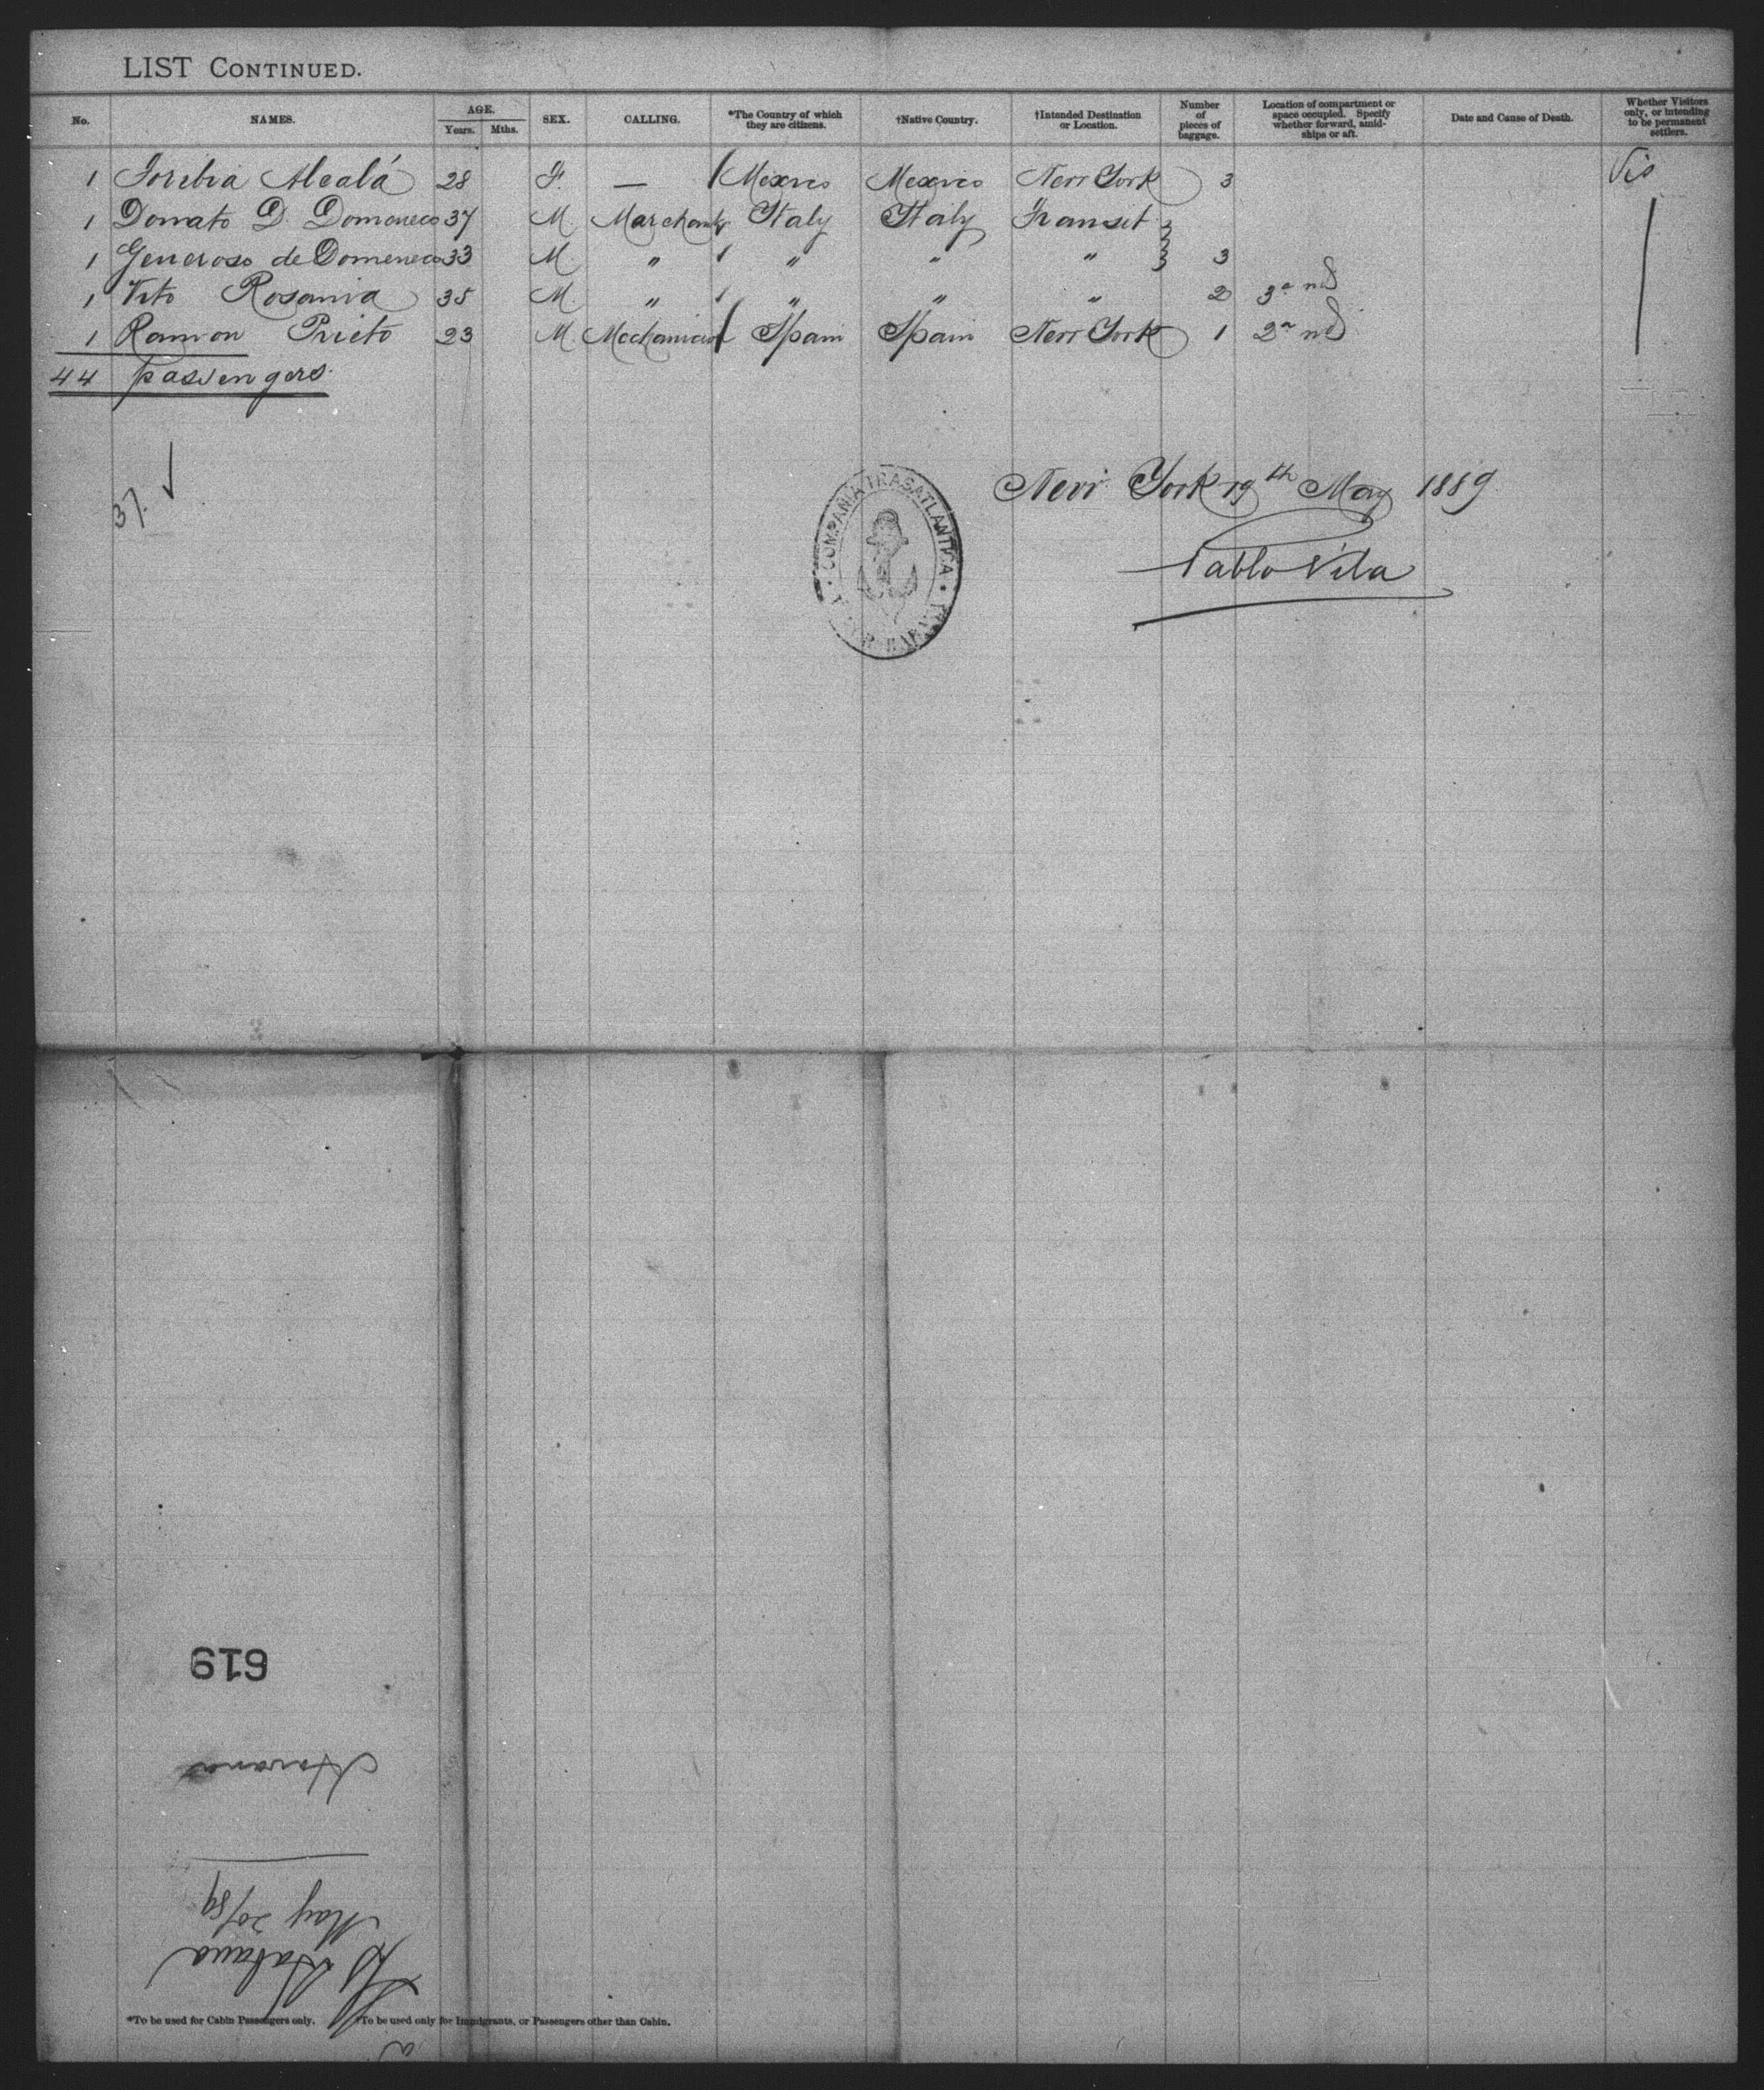 LIST CONTINUED.
No. NAMES. AGE. Years. Mths. SEX. CALLING. *The Country of which they are citizens. †Native Country. †Intended Destination or Location. Number of pieces of baggage. Location of compartment or space occupied. Specify whether forward, amidships or aft. Date and Cause of Death. Whether Visitors only, or intending to be permanent settlers.
1 Toribia Alcalá 28 F. — Mexico Mexico New York 3 Vis
1 Donato D. Domeneco 37 M Marchant Italy Italy Transit
1 Generoso de Domeneco 33 M " " " " 3
1 Vito Rosania 35 M. " " " " 2 3a nd
1 Ramon Prieto 23 M. Mechanician Spain Spain New York 1 2a nd
44 passengers.
37.
New York 19th May 1889
Pablo Vila
COMPAÑIA TRASATLANTICA
VAPOR HABANA
619
Havana
May 20/89
SS Habana
*To be used for Cabin Passengers only. †To be used only for Immigrants, or Passengers other than Cabin.